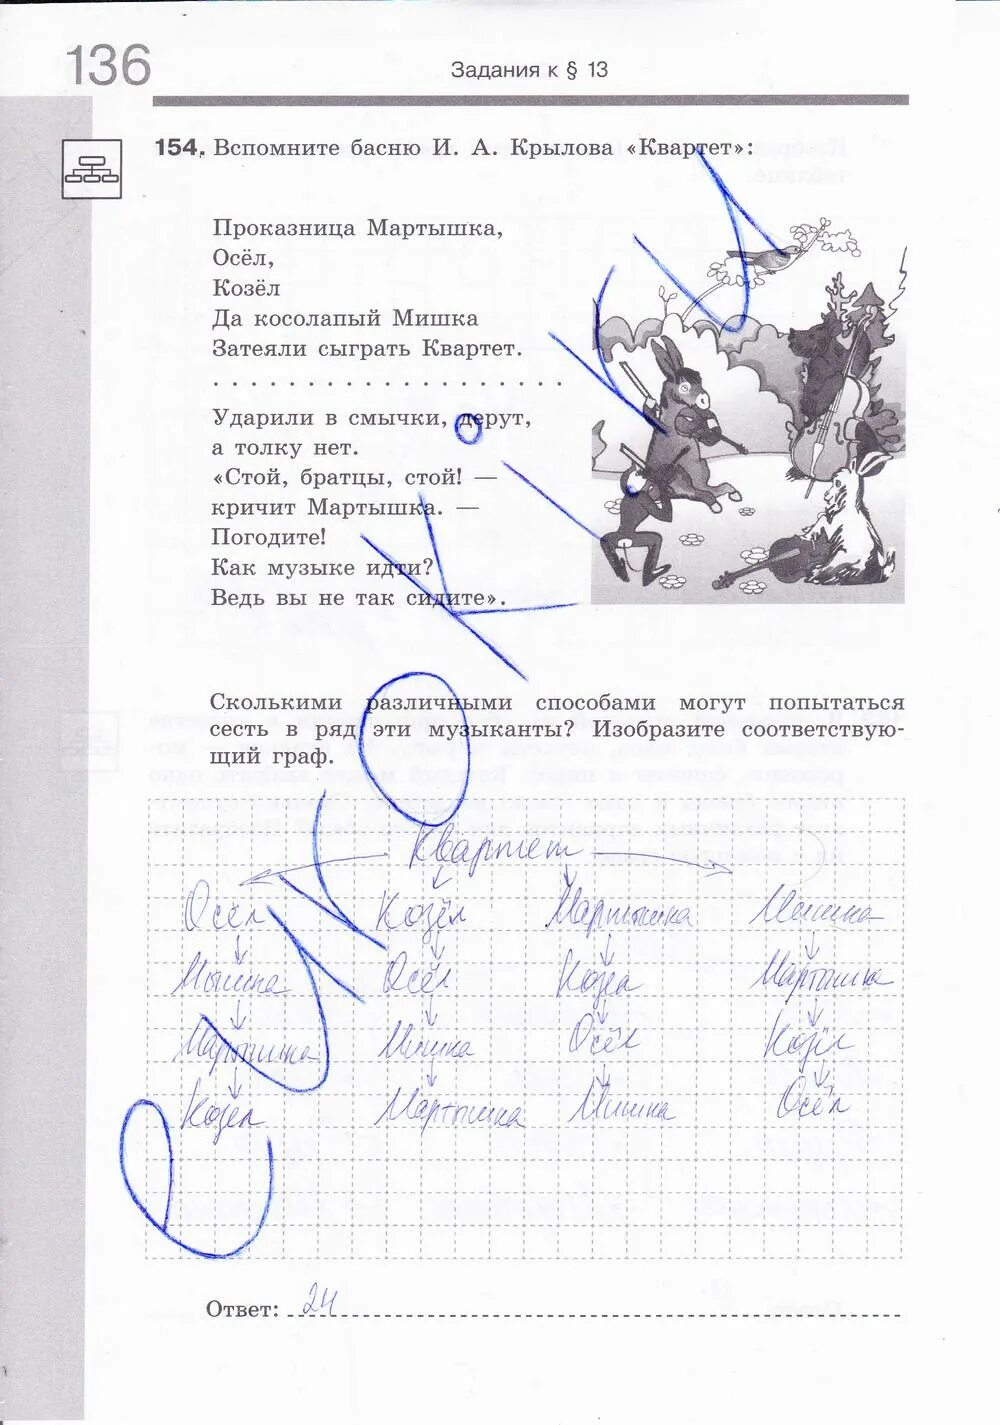 136
Задания к § 13
154. Вспомните басню И. А. Крылова «Квартет»:
Проказница Мартышка,
Осёл,
Козёл
Да косолапый Мишка
Затеяли сыграть Квартет.
. . . . . . . . . . . . . . . . . . .
Ударили в смычки, дерут,
а толку нет.
«Стой, братцы, стой! —
кричит Мартышка. —
Погодите!
Как музыке идти?
Ведь вы не так сидите».
Сколькими различными способами могут попытаться
сесть в ряд эти музыканты? Изобразите соответствую-
щий граф.
Квартет
Осёл Козёл Мартышка Мишка
Мышка Осёл Козел Мартышка
Мартышка Мишка Осёл Козёл
Козел Мартышка Мишка Осёл
Ответ: 24